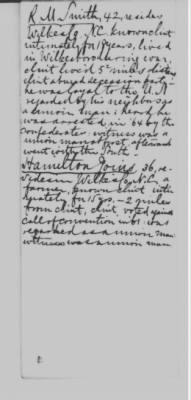 R. M. Smith, 42, resides
Wilkes Co, N.C. known clmt
intimately for 18 years, lived
in Wilkes Co during war,
clmt lived 5 miles distant
clmt always
he was loyal to the U.S.
regarded by his neighbors as
a union man; heard he
was arrested in 64 by the
confederate. witness was a
union man at first, afterward
went with the State.
Hamilton Joins 36, re-
sides in Wilkes Co, N.C., a
farmer, known clmt inti-
mately for 15 yrs. - 2 miles
from clmt, clmt voted against
call of convention in 61 was
regarded as a union man
witness was a union man